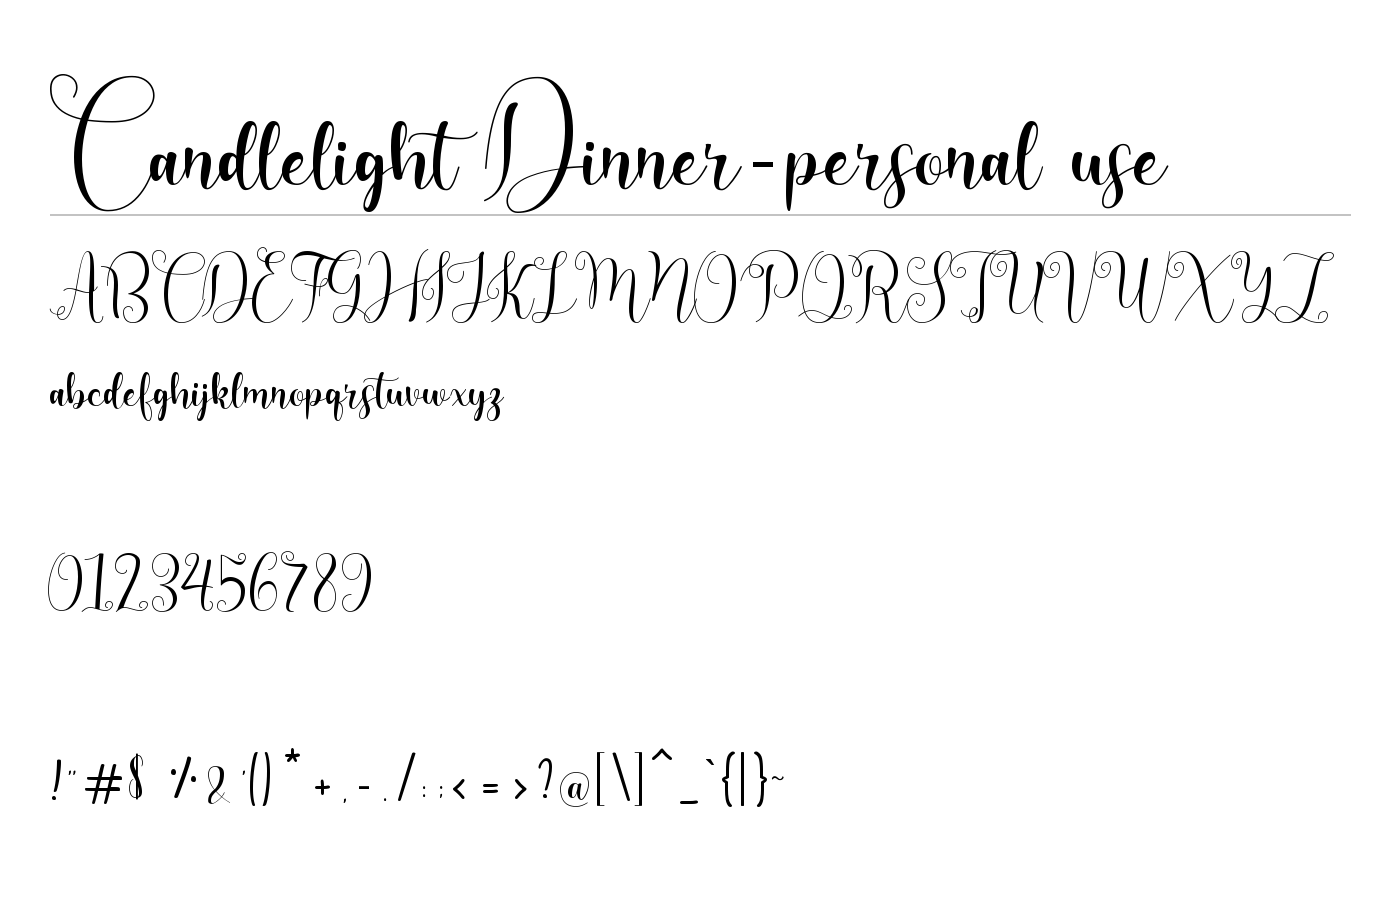 Candlelight Dinner - personal use
ABCDEFGHIJKLMNOPQRSTUVWXYZ
abcdefghijklmnopqrstuvwxyz
0123456789
!"#$%&'()*+,-./:;<=>?@[\]^_`{|}~